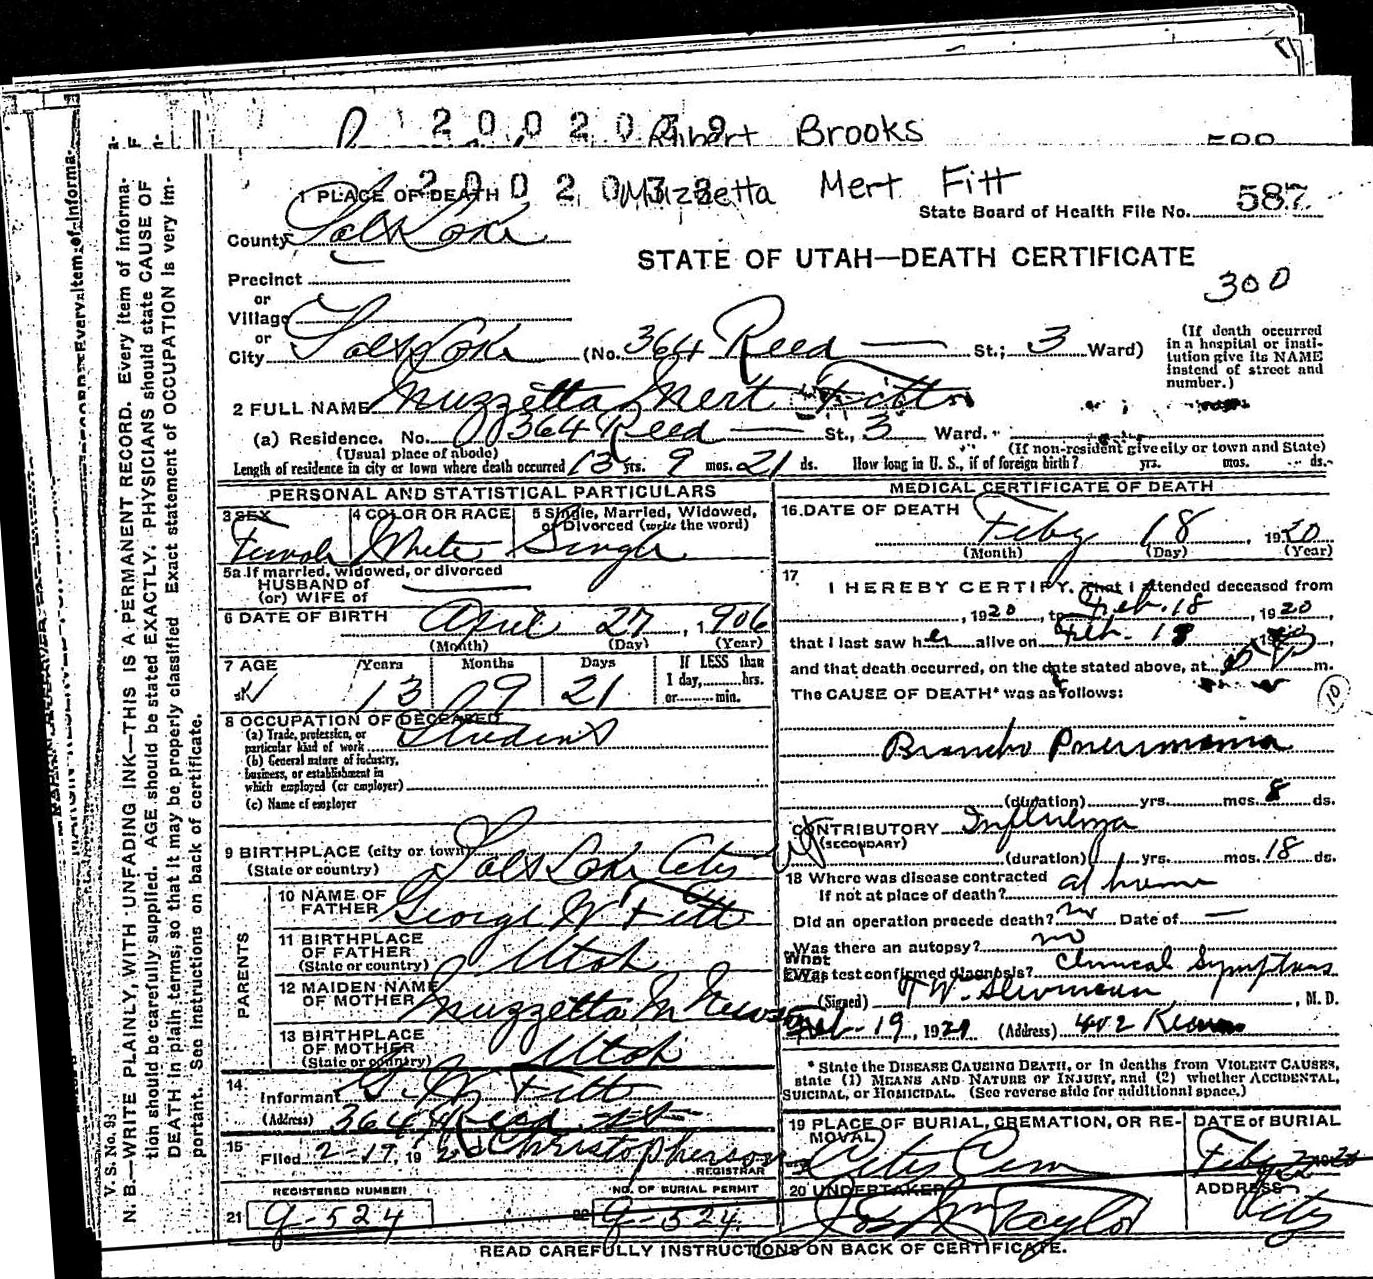 2002039 Robert Brooks
588
2002038 Muzzetta Mert Fitt
1 PLACE OF DEATH
State Board of Health File No. 587
County Salt Lake
STATE OF UTAH—DEATH CERTIFICATE
300
Precinct
or
Village
or
City Salt Lake (No. 364 Reed — St.; 3 Ward)
(If death occurred in a hospital or insti-
tution give its NAME
instead of street and
number.)
2 FULL NAME Muzzetta Mert Fitt
(a) Residence. No. 364 Reed — St., 3 Ward.
(Usual place of abode) (If non-resident give city or town and State)
Length of residence in city or town where death occurred 13 yrs. 9 mos. 21 ds. How long in U. S., if of foreign birth? yrs. mos. ds.
PERSONAL AND STATISTICAL PARTICULARS
3 SEX Female
4 COLOR OR RACE White
5 Single, Married, Widowed,
or Divorced (write the word) Single
5a If married, widowed, or divorced
HUSBAND of
(or) WIFE of
6 DATE OF BIRTH April 27, 1906
(Month) (Day) (Year)
7 AGE Years 13 Months 9 Days 21
If LESS than
1 day, hrs.
or min.
8 OCCUPATION OF DECEASED
(a) Trade, profession, or
particular kind of work Student
(b) General nature of industry,
business, or establishment in
which employed (or employer)
(c) Name of employer
9 BIRTHPLACE (city or town) Salt Lake City
(State or country)
PARENTS
10 NAME OF
FATHER George W Fitt
11 BIRTHPLACE
OF FATHER
(State or country) Utah
12 MAIDEN NAME
OF MOTHER Muzzetta M
13 BIRTHPLACE
OF MOTHER
(State or country) Utah
14
Informant G. W. Fitt
(Address) 364 Reed St
15
Filed 2-19, 1920 Christopherson
REGISTRAR
REGISTERED NUMBER
21 G-524
NO. OF BURIAL PERMIT
22 G-524
MEDICAL CERTIFICATE OF DEATH
16 DATE OF DEATH
Feby 18, 1920
(Month) (Day) (Year)
17
I HEREBY CERTIFY, That I attended deceased from
, 1920 to Feb. 18, 1920,
that I last saw her alive on Feb. 18
and that death occurred, on the date stated above, at m.
The CAUSE OF DEATH* was as follows:
10
Broncho Pneumonia
(duration) yrs. mos. 8 ds.
CONTRIBUTORY Influenza
(SECONDARY)
(duration) yrs. mos. 18 ds.
18 Where was disease contracted
if not at place of death? at home
Did an operation precede death? no Date of —
Was there an autopsy? no
What
Was test confirmed diagnosis? Clinical Symptoms
(Signed) , M. D.
Feb-19, 1920 (Address) 402
* State the DISEASE CAUSING DEATH, or in deaths from VIOLENT CAUSES,
state (1) MEANS AND NATURE OF INJURY, and (2) whether ACCIDENTAL,
SUICIDAL, or HOMICIDAL. (See reverse side for additional space.)
19 PLACE OF BURIAL, CREMATION, OR RE-
MOVAL
City Cem
DATE of BURIAL
Feby 1920
20 UNDERTAKER
Jos Wm Taylor
ADDRESS
City
READ CAREFULLY INSTRUCTIONS ON BACK OF CERTIFICATE.
V. S. No. 93.
N. B.—WRITE PLAINLY, WITH UNFADING INK—THIS IS A PERMANENT RECORD. Every item of informa-
tion should be carefully supplied. AGE should be stated EXACTLY. PHYSICIANS should state CAUSE OF
DEATH in plain terms, so that it may be properly classified. Exact statement of OCCUPATION is very im-
portant. See instructions on back of certificate.